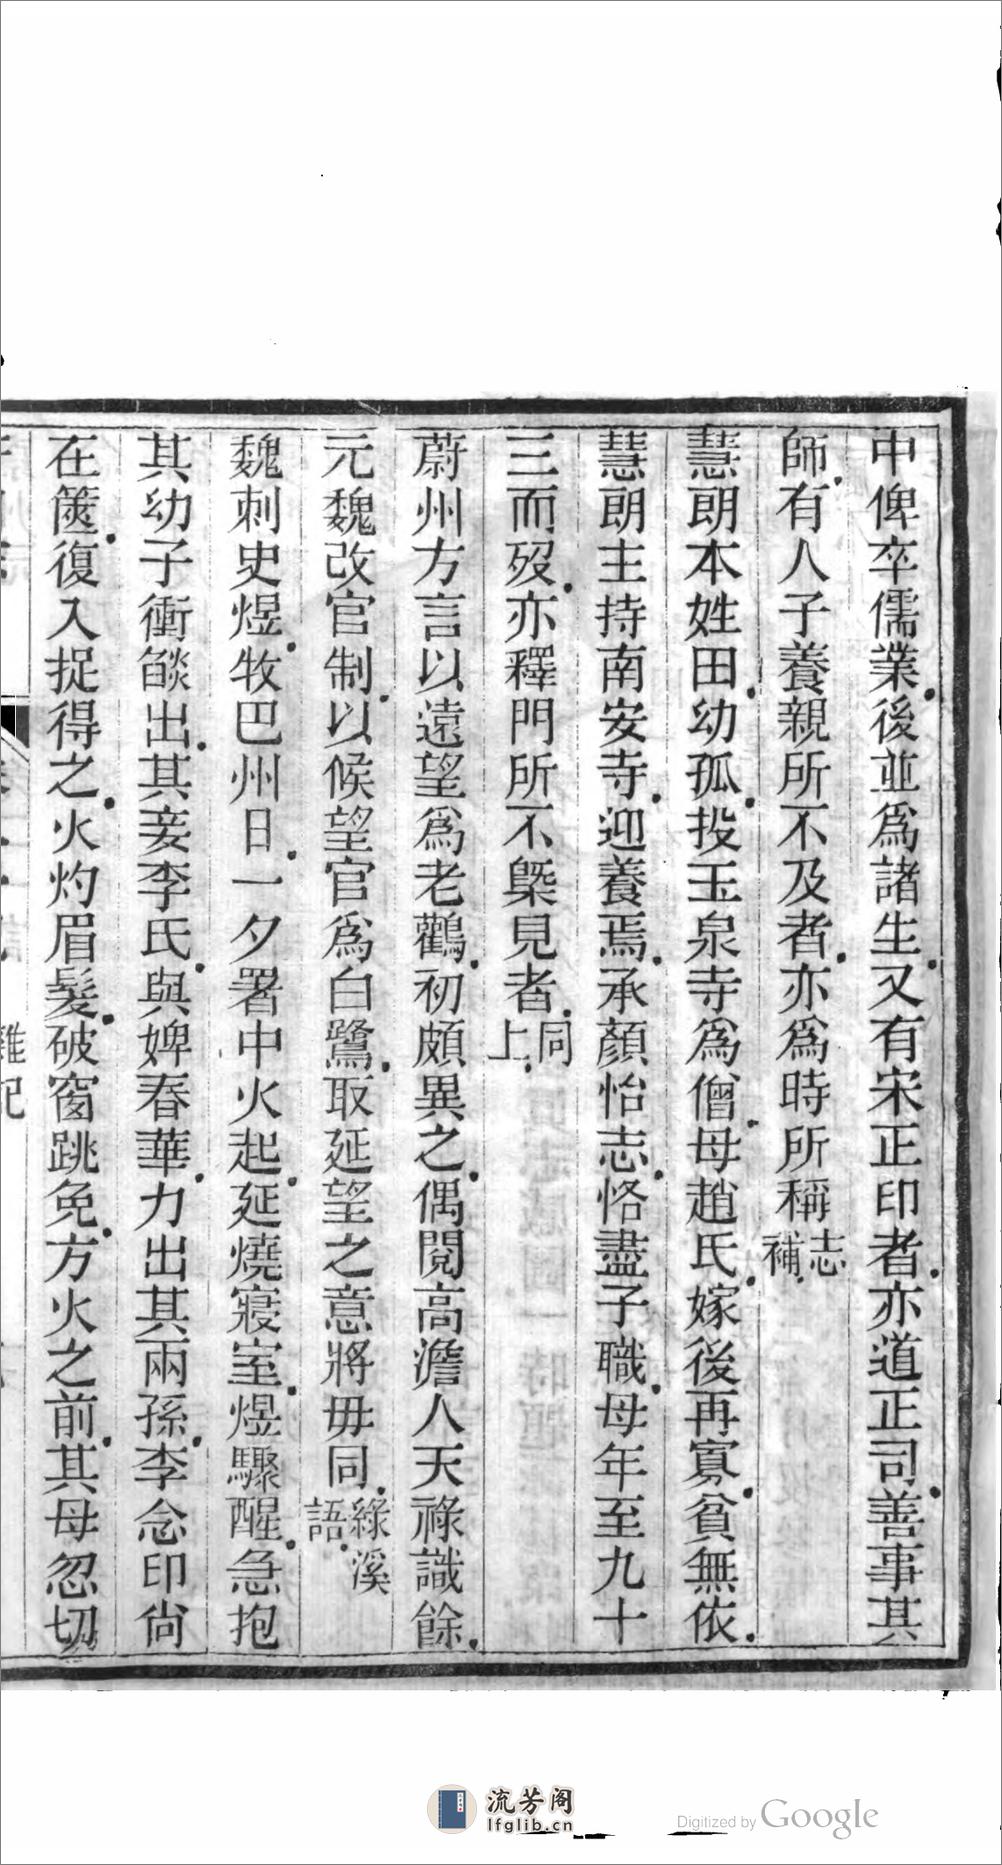 中俾卒儒業後並爲諸生又有宋正印者亦道正司善事其
師有人子養親所不及者亦爲時所稱志補
慧朗本姓田幼孤投玉泉寺爲僧母趙氏嫁後再寡貧無依
慧朗主持南安寺迎養焉承顏怡志恪盡子職母年至九十
三而歿亦釋門所不槩見者同上
蔚州方言以遠望爲老鸛初頗異之偶閱高澹人天祿識餘
元魏改官制以候望官爲白鷺取延望之意將毋同綠溪語
魏刺史煜牧巴州日一夕署中火起延燒寢室煜驟醒急抱
其幼子衝燄出其妾李氏與婢春華力出其兩孫李念印尙
在篋復入捉得之火灼眉髮破窗跳免方火之前其母忽切
雜記
流芳阁
lfglib.cn
Digitized by Google